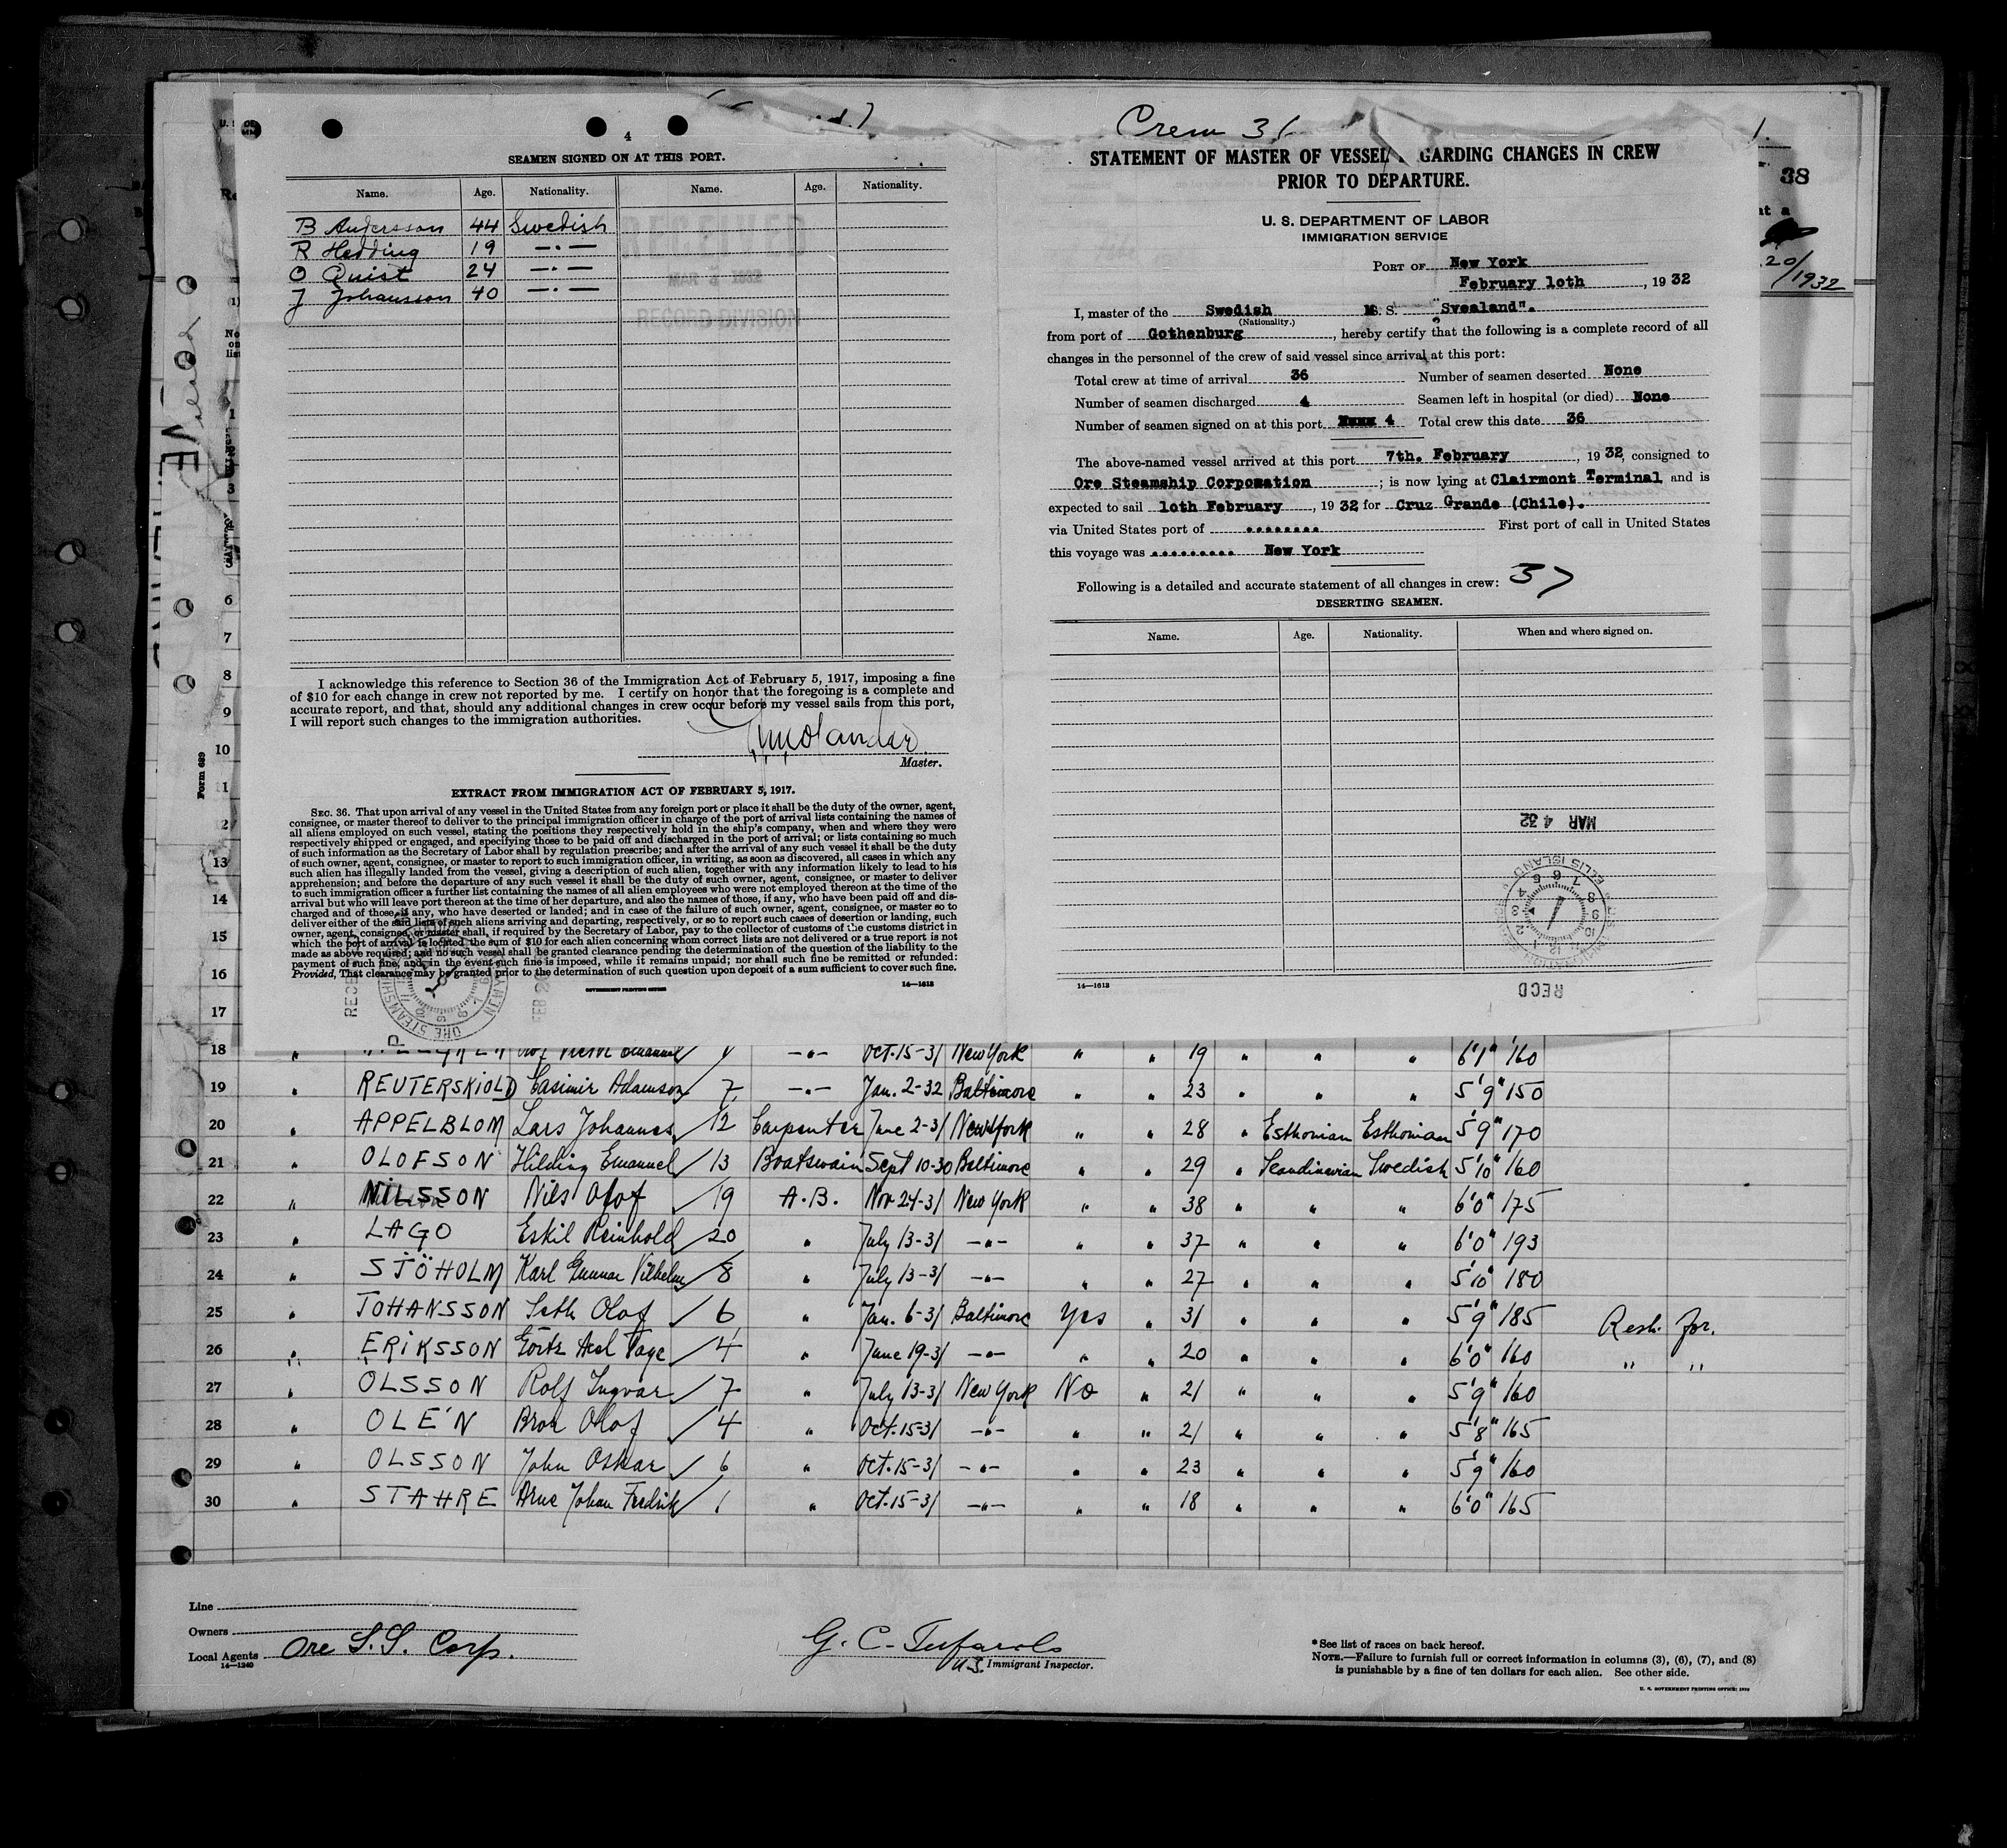 4
SEAMEN SIGNED ON AT THIS PORT.
Name. Age. Nationality. Name. Age. Nationality.
B Andersson 44 Swedish
R Hedding 19 —·—
O Quist 24 —·—
J Johansson 40 —·—
RECEIVED
MAR 5 1932
RECORD DIVISION
I acknowledge this reference to Section 36 of the Immigration Act of February 5, 1917, imposing a fine
of $10 for each change in crew not reported by me. I certify on honor that the foregoing is a complete and
accurate report, and that, should any additional changes in crew occur before my vessel sails from this port,
I will report such changes to the immigration authorities.
Master.
EXTRACT FROM IMMIGRATION ACT OF FEBRUARY 5, 1917.
SEC. 36. That upon arrival of any vessel in the United States from any foreign port or place it shall be the duty of the owner, agent,
consignee, or master thereof to deliver to the principal immigration officer in charge of the port of arrival lists containing the names of
all aliens employed on such vessel, stating the positions they respectively hold in the ship's company, when and where they were
respectively shipped or engaged, and specifying those to be paid off and discharged in the port of arrival; or lists containing so much
of such information as the Secretary of Labor shall by regulation prescribe; and after the arrival of any such vessel it shall be the duty
of such owner, agent, consignee, or master to report to such immigration officer, in writing, as soon as discovered, all cases in which any
such alien has illegally landed from the vessel, giving a description of such alien, together with any information likely to lead to his
apprehension; and before the departure of any such vessel it shall be the duty of such owner, agent, consignee, or master to deliver
to such immigration officer a further list containing the names of all alien employees who were not employed thereon at the time of the
arrival but who will leave port thereon at the time of her departure, and also the names of those, if any, who have been paid off and dis-
charged and of those, if any, who have deserted or landed; and in case of the failure of such owner, agent, consignee, or master so to
deliver either of the said lists of such aliens arriving and departing, respectively, or so to report such cases of desertion or landing, such
owner, agent, consignee, or master shall, if required by the Secretary of Labor, pay to the collector of customs of the customs district in
which the port of arrival is located the sum of $10 for each alien concerning whom correct lists are not delivered or a true report is not
made as above required; and no such vessel shall be granted clearance pending the determination of the question of the liability to the
payment of such fine, and, in the event such fine is imposed, while it remains unpaid; nor shall such fine be remitted or refunded:
Provided, That clearance may be granted prior to the determination of such question upon deposit of a sum sufficient to cover such fine.
GOVERNMENT PRINTING OFFICE 14—1613
Crew 36
STATEMENT OF MASTER OF VESSEL GARDING CHANGES IN CREW
PRIOR TO DEPARTURE.
U. S. DEPARTMENT OF LABOR
IMMIGRATION SERVICE
PORT OF New York
February 10th, 1932
I, master of the Swedish M.S. "Svealand".
(Nationality.)
from port of Gothenburg, hereby certify that the following is a complete record of all
changes in the personnel of the crew of said vessel since arrival at this port:
Total crew at time of arrival 36 Number of seamen deserted None
Number of seamen discharged 4 Seamen left in hospital (or died) None
Number of seamen signed on at this port 4 Total crew this date 36
The above-named vessel arrived at this port 7th. February, 1932, consigned to
Ore Steamship Corporation; is now lying at Clairmont Terminal and is
expected to sail 10th February, 1932 for Cruz Grande (Chile).
via United States port of ........ First port of call in United States
this voyage was ......... New York
Following is a detailed and accurate statement of all changes in crew: 37
DESERTING SEAMEN.
Name. Age. Nationality. When and where signed on.
MAR 4 32
ELLIS ISLAND
RECD
14—1613
38
20/1932
Form 689
18 " Emanuel 4 —·— Oct.15-31 New York " " 19 " " " 6'1" 160
19 " REUTERSKIOLD Casimir Adamson 7 —·— Jan. 2-32 Baltimore " " 23 " " " 5'9" 150
20 " APPELBLOM Lars Johannes 12 Carpenter June 2-31 New York " " 28 " Esthonian Esthonian 5'9" 170
21 " OLOFSON Hilding Emanuel 13 Boatswain Sept 10-30 Baltimore " " 29 " Scandinavian Swedish 5'10" 160
22 " NILSSON Nils Olof 19 A.B. Nov-24-31 New York " " 38 " " " 6'0" 175
23 " LAGO Eskil Reinhold 20 " July 13-31 —·— " " 37 " " " 6'0" 193
24 " SJÖHOLM Karl Gunnar Vilhelm 8 " July 13-31 —·— " " 27 " " " 5'10" 180
25 " JOHANSSON Seth Olof 6 " Jan. 6-31 Baltimore Yes " 31 " " " 5'9" 185 Resh. for.
26 " ERIKSSON Axel Tage 4 " June 19-31 —·— " " 20 " " " 6'0" 160 " "
27 " OLSSON Rolf Ingvar 7 " July 13-31 New York No " 21 " " " 5'9" 160
28 " OLÉN Bror Olof 4 " Oct.15-31 —·— " " 21 " " " 5'8" 165
29 " OLSSON John Oskar 6 " Oct.15-31 —·— " " 23 " " " 5'9" 160
30 " STAHRE Arne Johan Fredrik 1 " Oct.15-31 —·— " " 18 " " " 6'0" 165
Line
Owners
Local Agents Ore S.S. Corp.
14—1240
G. C. Tufarolo
U.S. Immigrant Inspector.
*See list of races on back hereof.
NOTE.—Failure to furnish full or correct information in columns (3), (6), (7), and (8)
is punishable by a fine of ten dollars for each alien. See other side.
U. S. GOVERNMENT PRINTING OFFICE: 1930